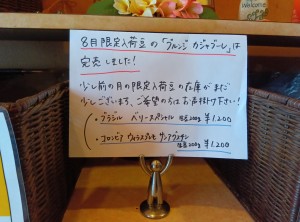 Welcome
COFFEE
8月限定入荷豆の「ブルンジ カジャブーレ」は
完売しました!
少し前の月の限定入荷豆の在庫がまだ
少しございます、ご希望の方はお声掛け下さい!
・ブラジル ベリースペシャル 生豆200g ¥1,200
・コロンビア ウィラスプレモ サンアグスチン
生豆200g ¥1,200